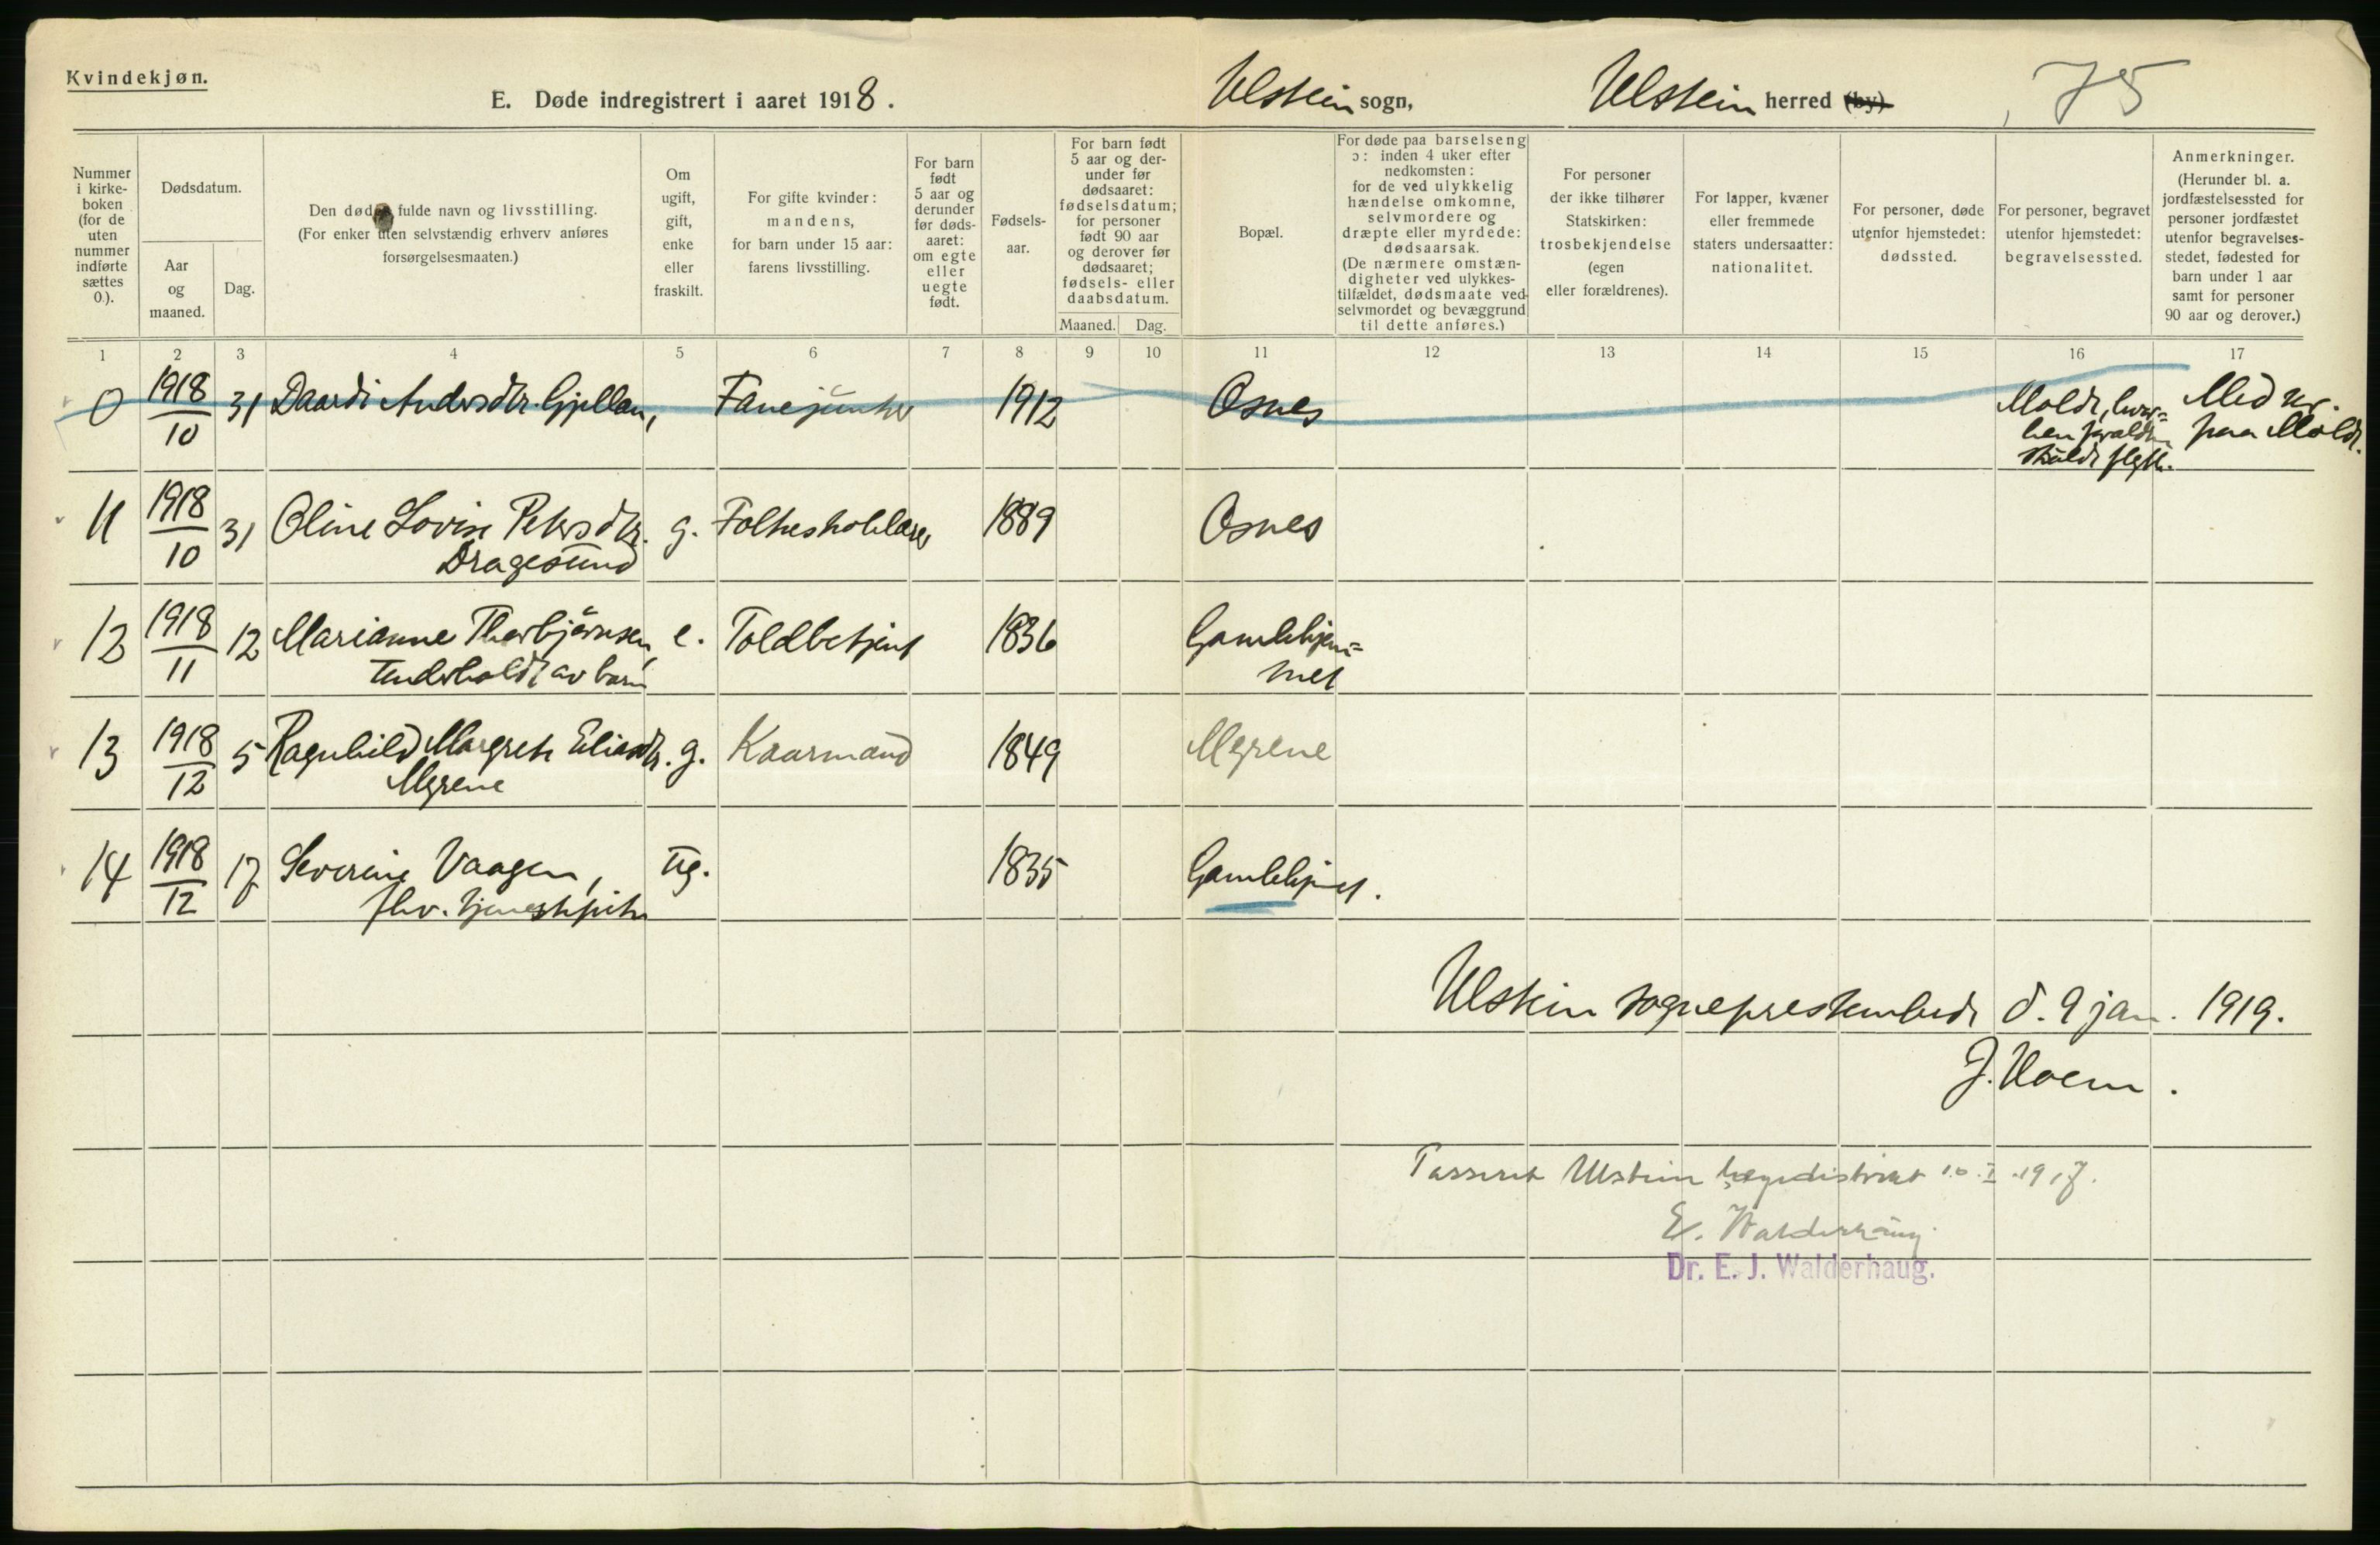 Kvindekjøn.
E. Døde indregistrert i aaret 1918.
Ulstein sogn,
Ulstein herred (by)
, 75
Nummer
i kirke-
boken
(for de
uten
nummer
indførte
sættes
0.).
Dødsdatum.
Aar
og
maaned.
Dag.
Den dødes fulde navn og livsstilling.
(For enker uten selvstændig erhverv anføres
forsørgelsesmaaten.)
Om
ugift,
gift,
enke
eller
fraskilt.
For gifte kvinder:
mandens,
for barn under 15 aar:
farens livsstilling.
For barn
født
5 aar og
derunder
før døds-
aaret:
om egte
eller
uegte
født.
Fødsels-
aar.
For barn født
5 aar og der-
under før
dødsaaret:
fødselsdatum;
for personer
født 90 aar
og derover før
dødsaaret;
fødsels- eller
daabsdatum.
Maaned. Dag.
Bopæl.
For døde paa barselseng
ɔ: inden 4 uker efter
nedkomsten:
for de ved ulykkelig
hændelse omkomne,
selvmordere og
dræpte eller myrdede:
dødsaarsak.
(De nærmere omstæn-
digheter ved ulykkes-
tilfældet, dødsmaate ved
selvmordet og bevæggrund
til dette anføres.)
For personer
der ikke tilhører
Statskirken:
trosbekjendelse
(egen
eller forældrenes).
For lapper, kvæner
eller fremmede
staters undersaatter:
nationalitet.
For personer, døde
utenfor hjemstedet:
dødssted.
For personer, begravet
utenfor hjemstedet:
begravelsessted.
Anmerkninger.
(Herunder bl. a.
jordfæstelsessted for
personer jordfæstet
utenfor begravelses-
stedet, fødested for
barn under 1 aar
samt for personer
90 aar og derover.)
1 2 3 4 5 6 7 8 9 10 11 12 13 14 15 16 17
0 1918/10 31 Daardi Andersdtr. Gjellan, Fanejunker 1912 Osnes Molde, hvor- Med nr.
hen forældrene paa Molde.
skulde flytte.
11 1918/10 31 Oline Lovise Petersdtr. g. Folkeskolelærer 1889 Osnes
Dragesund
12 1918/11 12 Marianne Thorbjørnsen, e. Toldbetjent 1836 Gamlehjem-
underholdt av barn met
13 1918/12 5 Ragnhild Margrete Eliasdtr. g. Kaarmand 1849 Myrene
Myrene
14 1918/12 17 Severine Vaagen, ug. 1835 Gamlehjemet.
fhv. tjenestepike
Ulstein sogneprestembede d. 9 jan. 1919.
J. Hoem.
Passeret Ulstein lægedistrikt 10.I.1917.
E. Walderhaug.
Dr. E. J. Walderhaug.